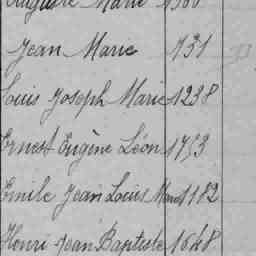 Auguste Marie 1360
Jean Marie 731
Louis Joseph Marie 1238
Ernest Eugène Léon 1753
Emile Jean Louis Marie 1182
Henri Jean Baptiste 1648